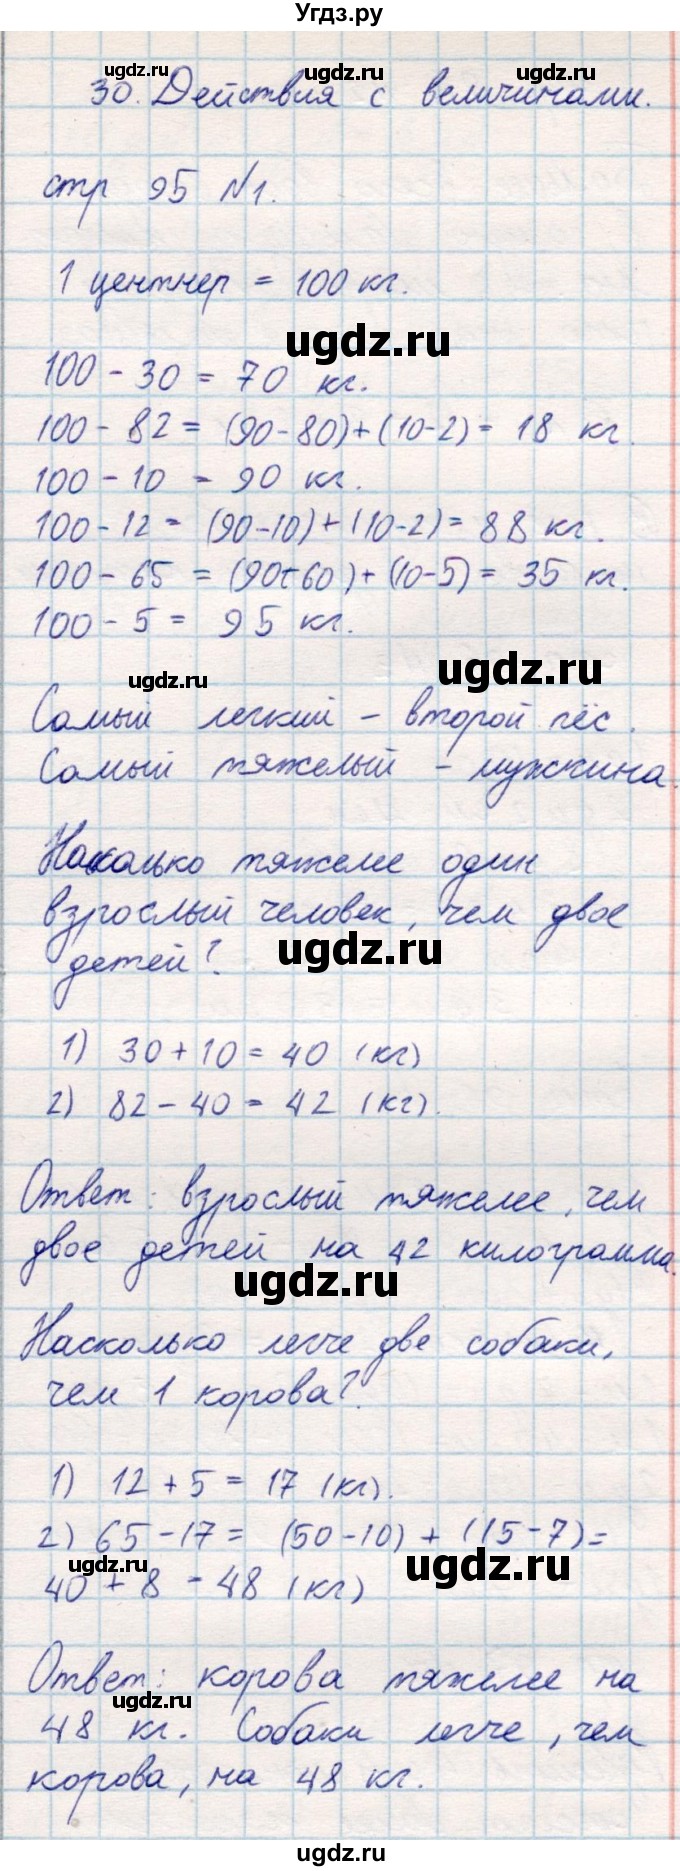 Угдз.ру
ugdz.ru ugdz.ru ugdz.ru
30. Действия с величинами.
стр 95 №1.
1 центнер = 100 кг.
ugdz.ru
100 - 30 = 70 кг.
100 - 82 = (90-80)+(10-2) = 18 кг.
100 - 10 = 90 кг.
100 - 12 = (90-10)+(10-2) = 88 кг.
100 - 65 = (90-60)+(10-5) = 35 кг.
100 - 5 = 95 кг.
ugdz.ru
ugdz.ru
Самый легкий - второй пёс.
Самый тяжелый - мужчина.
Насколько тяжелее один
взрослый человек, чем двое
ugdz.ru
детей?
1) 30 + 10 = 40 (кг)
2) 82 - 40 = 42 (кг).
Ответ: взрослый тяжелее, чем
двое детей на 42 килограмма.
ugdz.ru
Насколько легче две собаки,
чем 1 корова?
1) 12 + 5 = 17 (кг).
2) 65 - 17 = (50-10) + (15-7) =
ugdz.ru ugdz.ru
40 + 8 = 48 (кг)
Ответ: корова тяжелее на
ugdz.ru
48 кг. Собаки легче, чем
корова, на 48 кг.
ugdz.ru